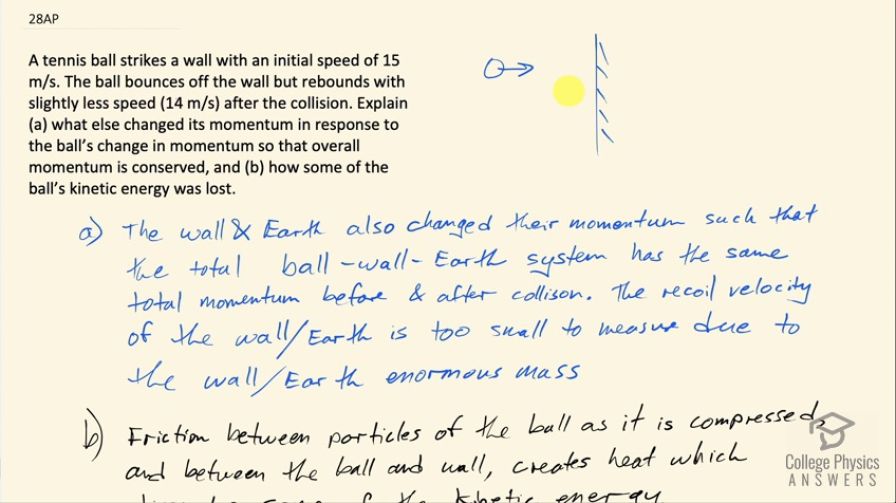 28AP
A tennis ball strikes a wall with an initial speed of 15
m/s. The ball bounces off the wall but rebounds with
slightly less speed (14 m/s) after the collision. Explain
(a) what else changed its momentum in response to
the ball's change in momentum so that overall
momentum is conserved, and (b) how some of the
ball's kinetic energy was lost.
a) The wall & Earth also changed their momentum such that
the total ball-wall-Earth system has the same
total momentum before & after collison. The recoil velocity
of the wall/Earth is too small to measure due to
the wall/Earth enormous mass
b) Friction between particles of the ball as it is compressed,
and between the ball and wall, creates heat which
of the kinetic energy
College Physics
ANSWERS